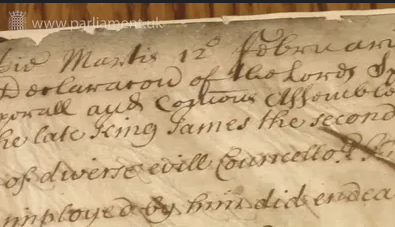 www.parliament.uk
die Martis 12° Februarii
Declaration of the Lords Sp
porall and Comons Assemble
he late King James the second
of diverse evill Councellors
imployed by him did endea